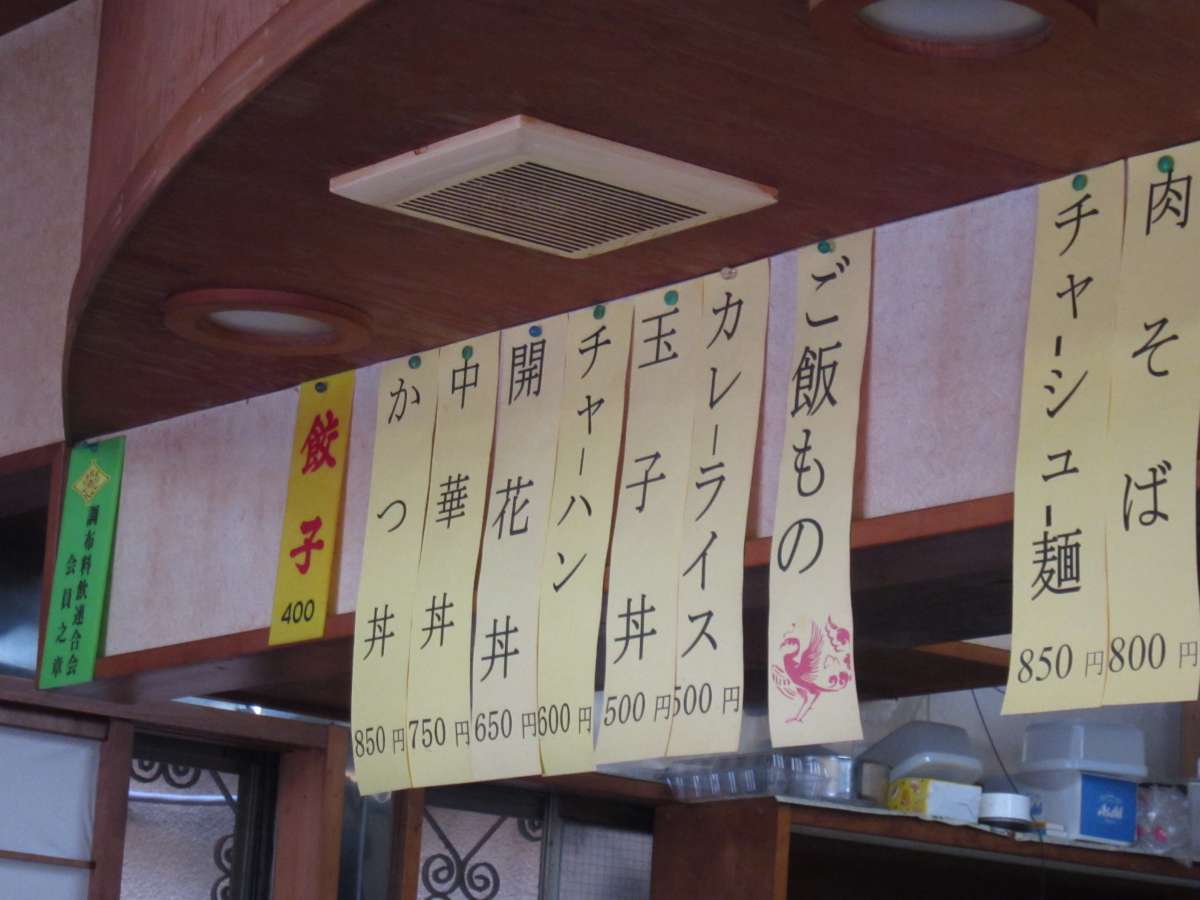 肉そば
800円
チャーシュー麺
850円
ご飯もの
カレーライス
500円
玉子丼
500円
チャーハン
600円
開花丼
650円
中華丼
750円
かつ丼
850円
餃子
400
調布料飲連合会
会員之章
Asahi